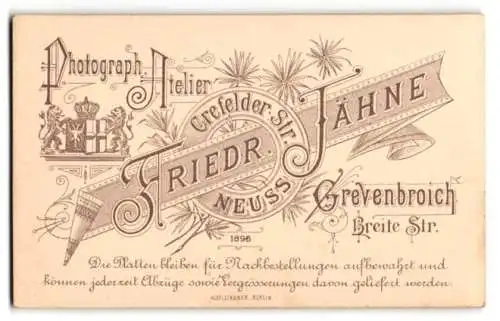 Photograph. Atelier
Crefelder-Str.
FRIEDR. JÄHNE
NEUSS
Grevenbroich
Breite Str.
1896
Die Platten bleiben für Nachbestellungen aufbewahrt und
können jederzeit Abzüge sowie Vergrösserungen davon geliefert werden.
BERLIN